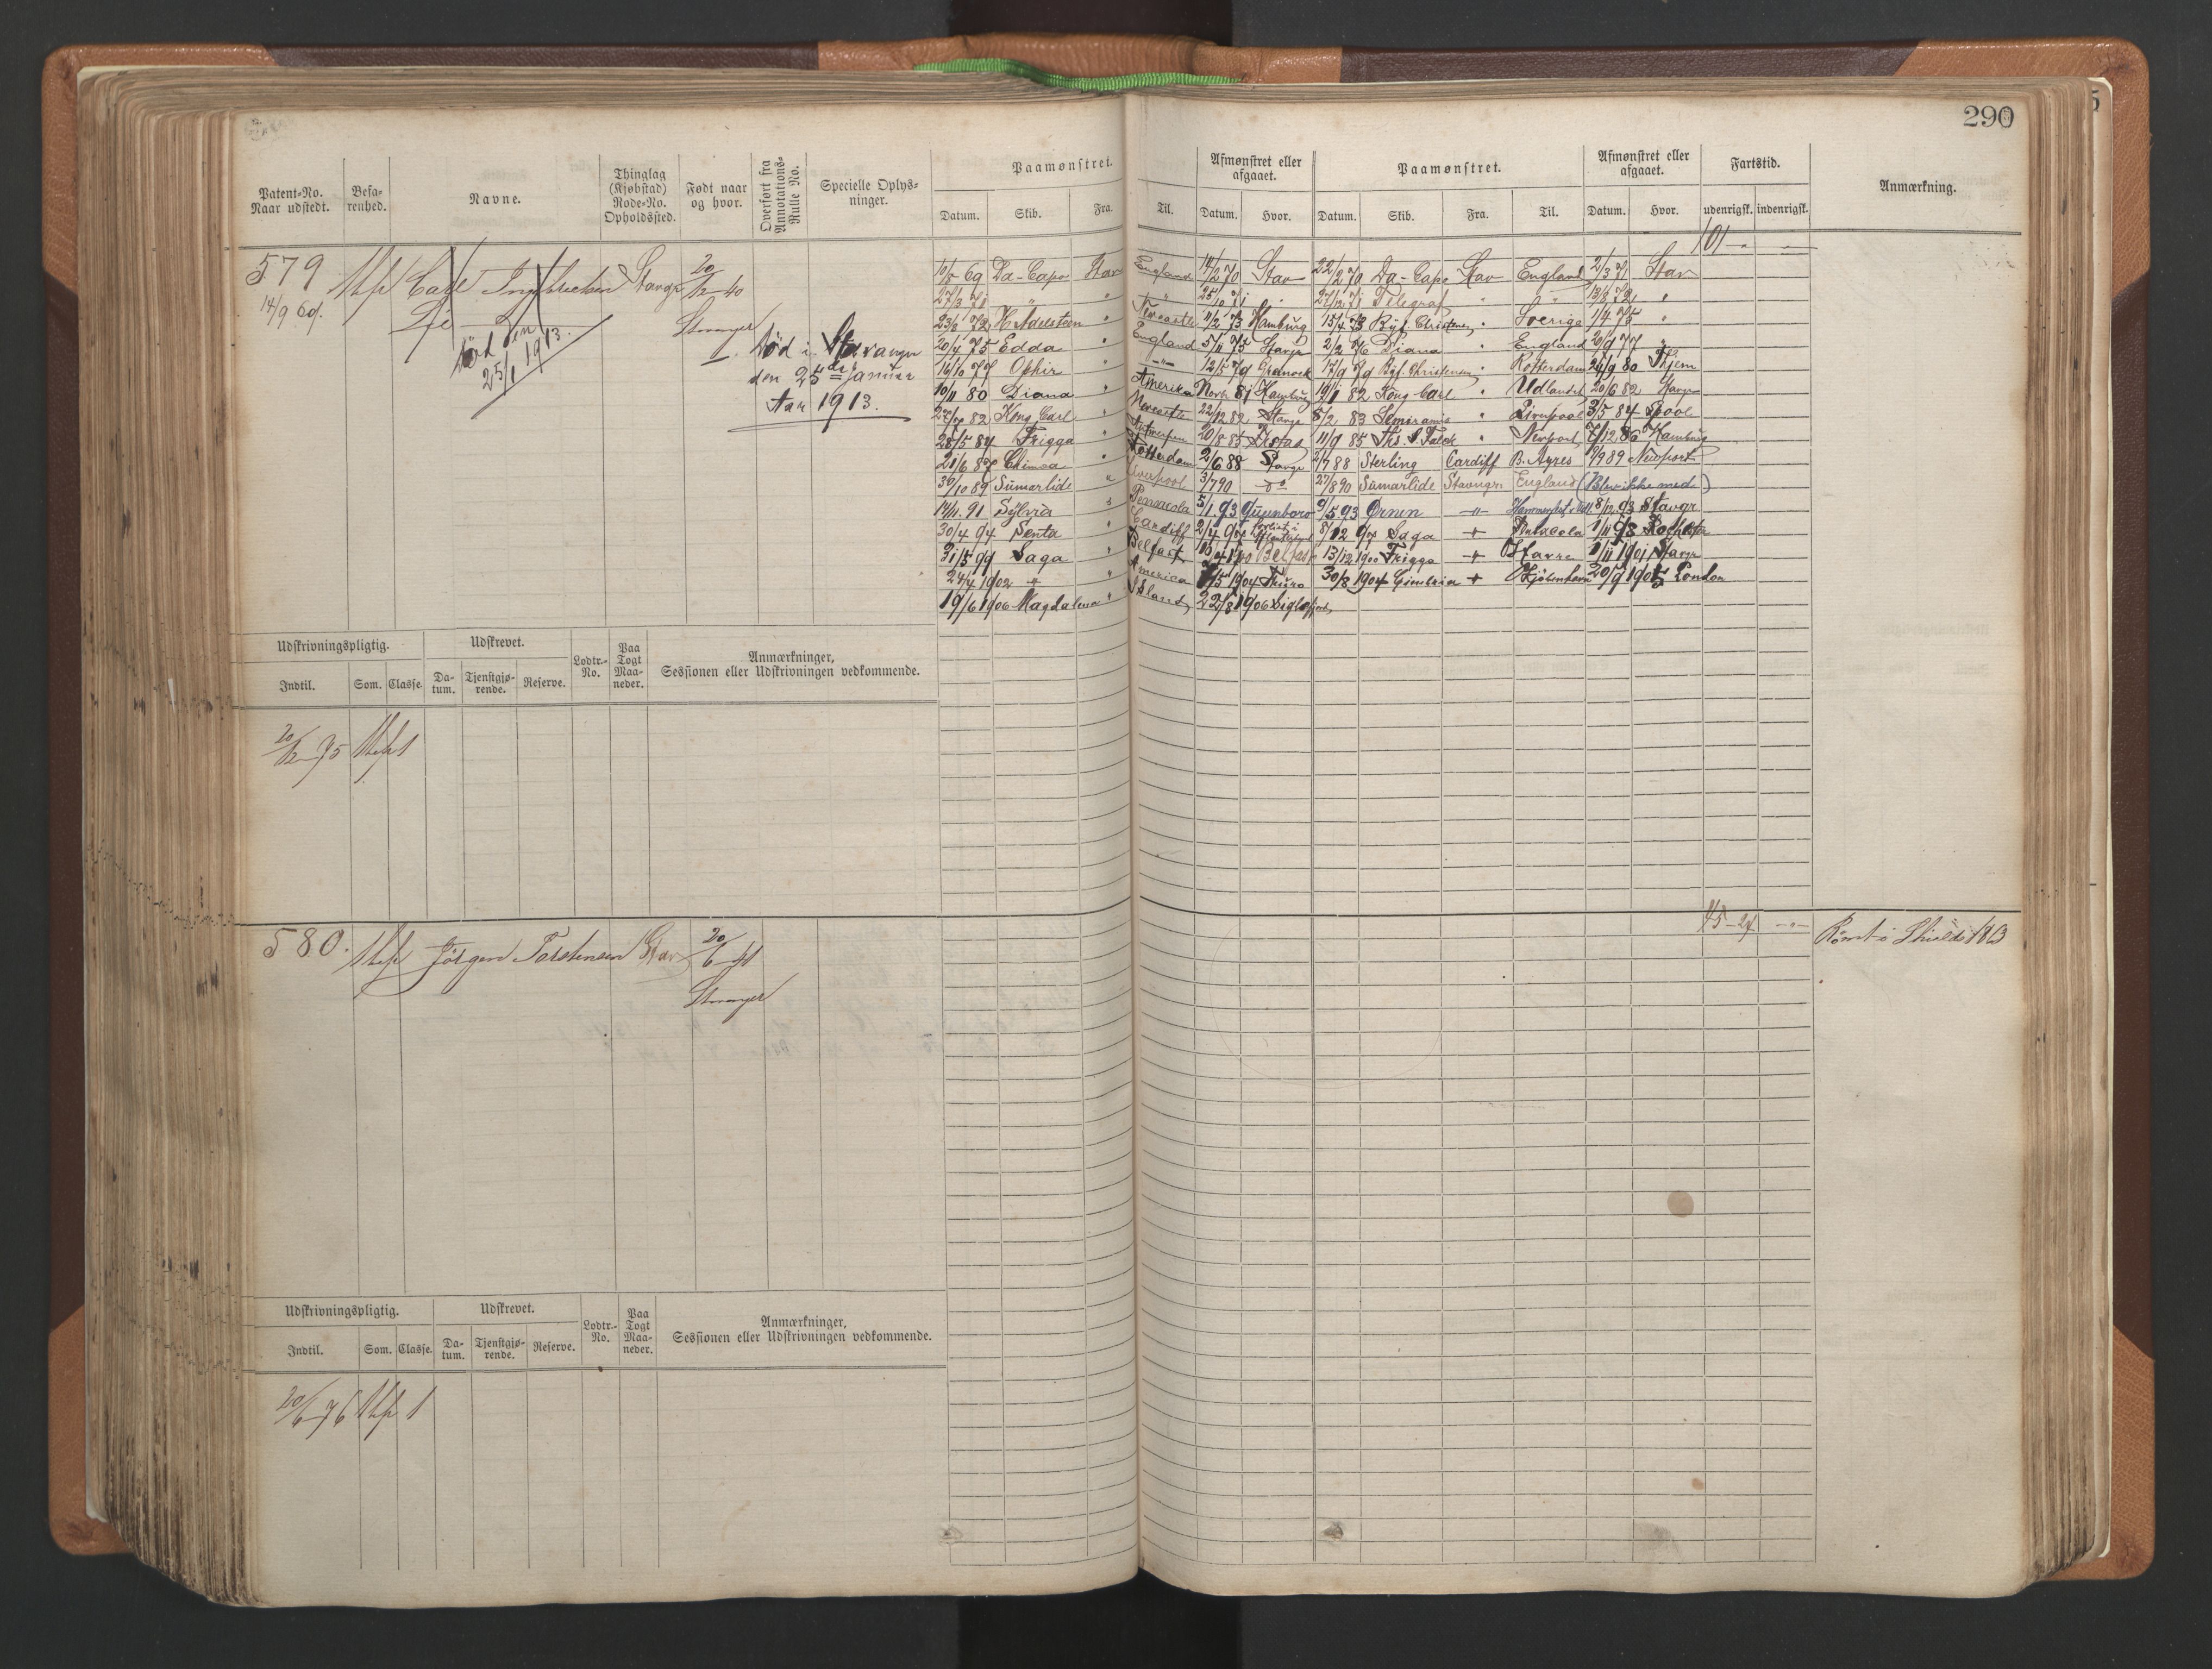 290
Patent-No. Naar udstedt.
Befarenhed.
Navne.
Thinglag (Kjøbstad) Rode-No. Opholdssted.
Født naar og hvor.
Overført fra Annotations-Rulle No.
Specielle Oplysninger.
Paamønstret.
Datum. Skib. Fra. Til.
Afmønstret eller afgaaet.
Datum. Hvor.
Paamønstret.
Datum. Skib. Fra. Til.
Afmønstret eller afgaaet.
Datum. Hvor.
Fartstid.
udenrigsk. indenrigsk.
Anmærkning.
101
579 Carl Stavgr 20/12 40
14/9 69.
Stavanger
Død den 25/1 1913.
Død i Stavanger
den 25de januar
Aar 1913.
10/8 69 Da-Capo Stav England 14/2 70 Stav 22/2 70 Da-Capo Stav England 2/3 71 Stav
27/3 71 " " " 25/10 71 " 27/12 71 Telegraf " " 13/8 72 "
23/8 72 H Adelsteen " Newcastle 11/2 73 Hamburg 15/4 73 Byf. Christensen " Sverige 1/4 75 "
20/4 75 Edda " England 5/11 75 Stavgr 2/2 76 Diana " England 20/9 77 "
16/10 77 Ophir " 12/5 79 Greenock 17/9 79 Byf Christensen " Rotterdam 24/9 80 Thjem
10/11 80 Diana " Amerika Novb 81 Hamburg 19/1 82 Kong Carl " Udlandet 20/6 82 Stavgr
27/7 82 Kong Carl " Newcastle 22/12 82 Stavgr 5/2 83 Semiramis " Liverpool 3/5 84 Pool
28/5 84 Frigga " Antwerpen 20/8 85 Ystad 11/9 85 Ths. S Falck " Newport 7/12 86 Hamburg
21/6 87 Chimoa " Rotterdam 2/6 88 Stavgr 2/7 88 Sterling Cardiff B. Ayres 9/9 89 Newport
30/10 89 Sumarlide " Liverpool 3/7 90 do 27/8 90 Sumarlide Stavngr. England (Blev ikke med)
14/11. 91 Sylvia " Pensacola 5/1 93 Queenboro 9/5 93 Ørnen " 8/12 93 Stavgr
30/4 94 Penta " Cardiff 2/4 97 forlist i 8/12 97 Saga + Pensacola 1/11 98 Rochester
31/5 99 Saga " Belfast Belfast 13/12 1900 Frigga + Havre 1/11 1901 Stavgr
24/4 1902 + " America 7/5 1904 Truro 30/8 1904 Gimbria + Kjøbenhavn 20/9 1905 London
19/6 1906 Magdalena " Island, 22/8 1906 Siglefjord,
Udskrivningspligtig.
Indtil. Som. Classe.
Udskrevet.
Datum. Tjenstgjørende. Reserve.
Lodtr.-No.
Paa Togt Maaneder.
Anmærkninger,
Sessionen eller Udskrivningen vedkommende.
20/12 75 1
580. Jörgen Torstensen Stav 20/6 41
Stavanger
Rømt i Shields 1863
Udskrivningspligtig.
Indtil. Som. Classe.
Udskrevet.
Datum. Tjenstgjørende. Reserve.
Lodtr.-No.
Paa Togt Maaneder.
Anmærkninger,
Sessionen eller Udskrivningen vedkommende.
20/6 76 1